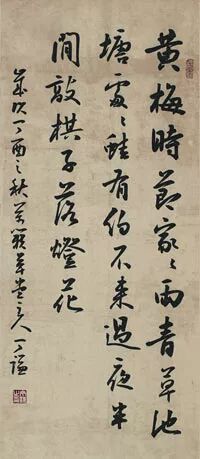 黄梅時節家々雨青草池
塘處々蛙有約不来過夜半
間敲棋子落燈花
歲次丁酉之秋草堂主人丁